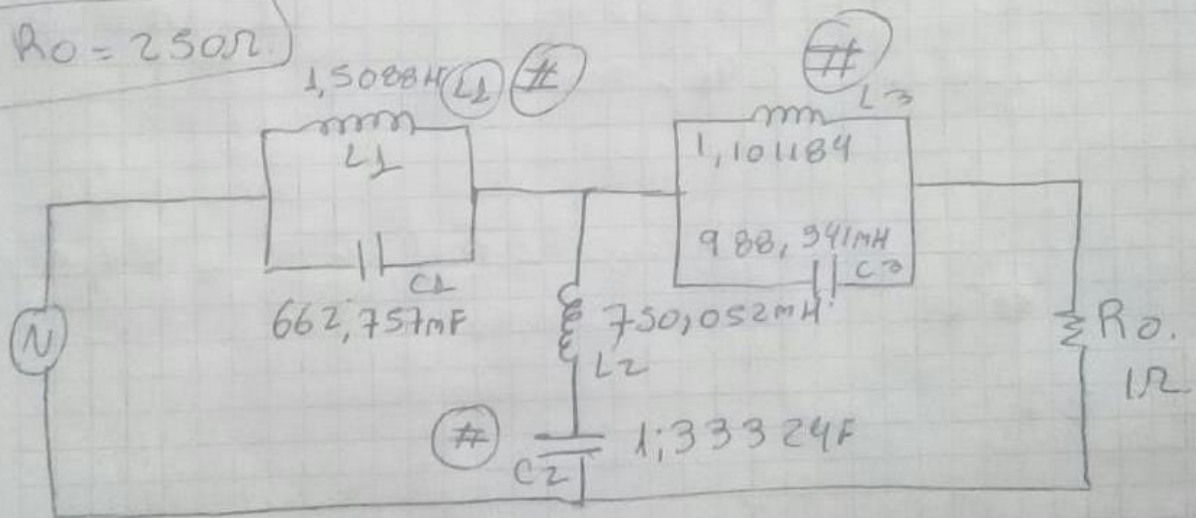 R0 = 250Ω
1,5088H L1 #
L1
C1
662,757mF
N
#
L3
1,101184
988,941mH
C3
750,052mH
L2
# 1;33324F
C2
R0.
1Ω